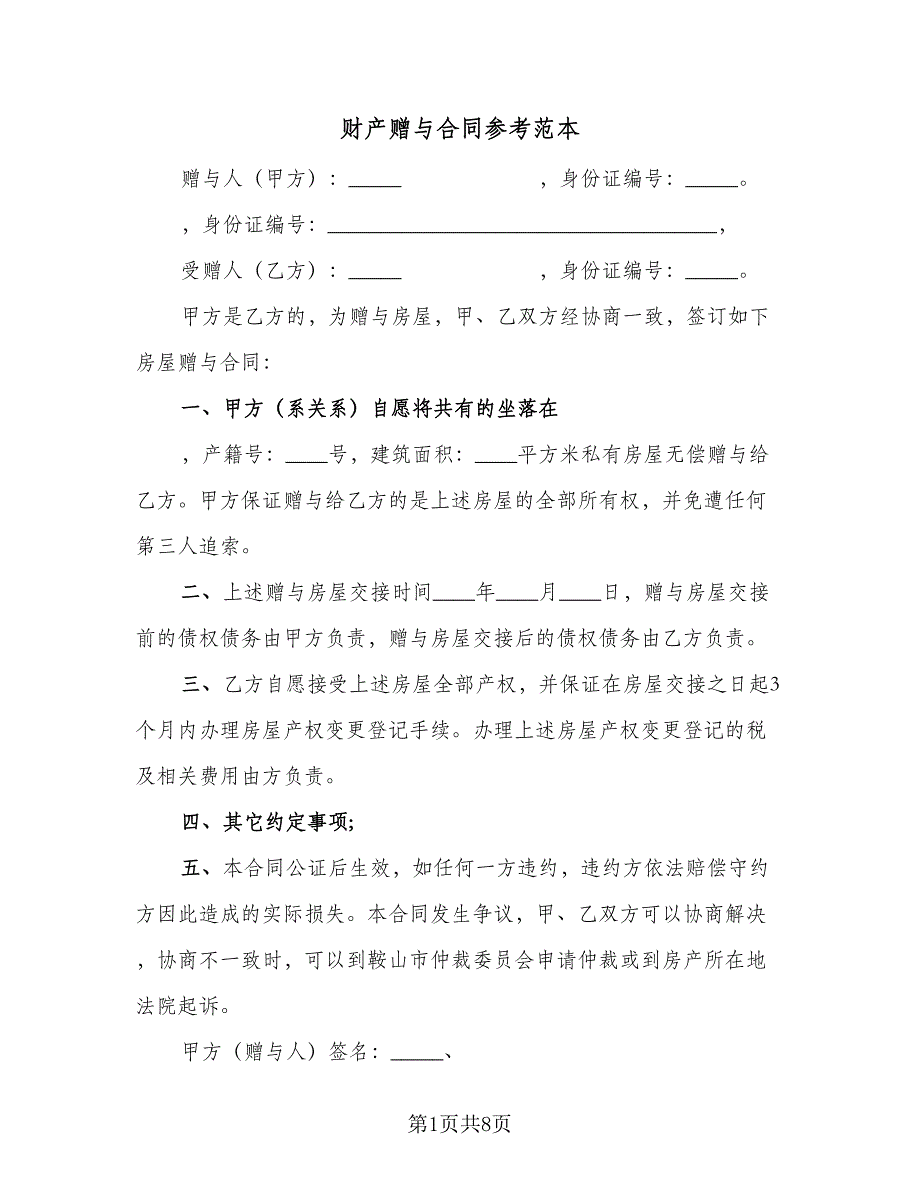 财产赠与合同参考范本
赠与人（甲方）：_____ ，身份证编号：_____。
，身份证编号：_____________________________________，
受赠人（乙方）：_____ ，身份证编号：_____。
甲方是乙方的，为赠与房屋，甲、乙双方经协商一致，签订如下
房屋赠与合同：
一、甲方（系关系）自愿将共有的坐落在
，产籍号：____号，建筑面积：____平方米私有房屋无偿赠与给
乙方。甲方保证赠与给乙方的是上述房屋的全部所有权，并免遭任何
第三人追索。
二、上述赠与房屋交接时间____年____月____日，赠与房屋交接
前的债权债务由甲方负责，赠与房屋交接后的债权债务由乙方负责。
三、乙方自愿接受上述房屋全部产权，并保证在房屋交接之日起3
个月内办理房屋产权变更登记手续。办理上述房屋产权变更登记的税
及相关费用由方负责。
四、其它约定事项;
五、本合同公证后生效，如任何一方违约，违约方依法赔偿守约
方因此造成的实际损失。本合同发生争议，甲、乙双方可以协商解决
，协商不一致时，可以到鞍山市仲裁委员会申请仲裁或到房产所在地
法院起诉。
甲方（赠与人）签名：_____、
第1页共8页